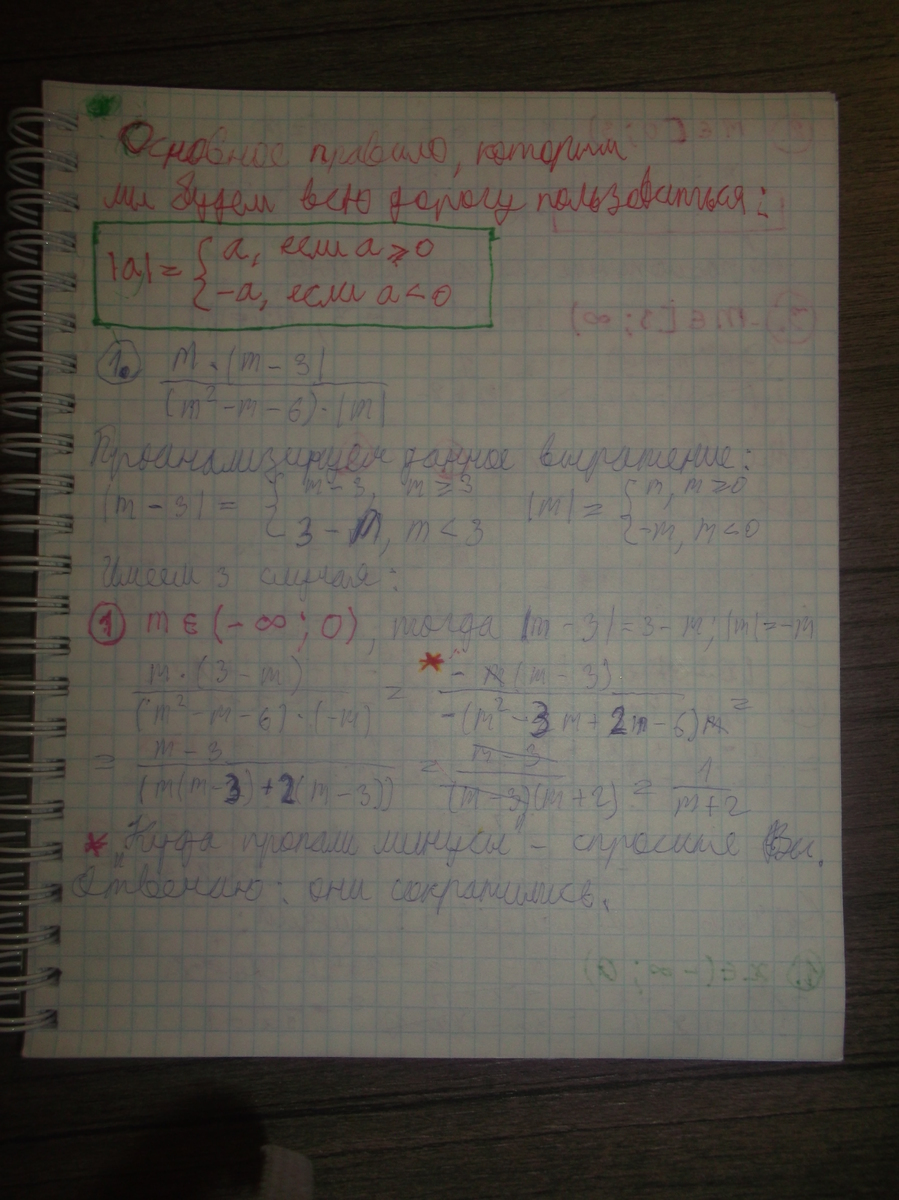 Основное правило, которым
мы будем всю дорогу пользоваться:
|a| = { a, если a ≥ 0
{ -a, если a < 0
1. m · |m - 3|
(m² - m - 6) · |m|
Проанализируем данное выражение:
|m - 3| = { m - 3, m ≥ 3 |m| = { m, m ≥ 0
{ 3 - m, m < 3 { -m, m < 0
Имеем 3 случая:
1 m ∈ (-∞; 0), тогда |m - 3| = 3 - m; |m| = -m
m · (3 - m) = * - m (m - 3)
(m² - m - 6) · (-m) -(m² - 3m + 2m - 6) m =
= m - 3 = m - 3 = 1
(m(m-3) + 2(m-3)) (m-3)(m+2) m+2
* "Куда пропали минусы" - спросите Вы.
Отвечаю: они сократились.